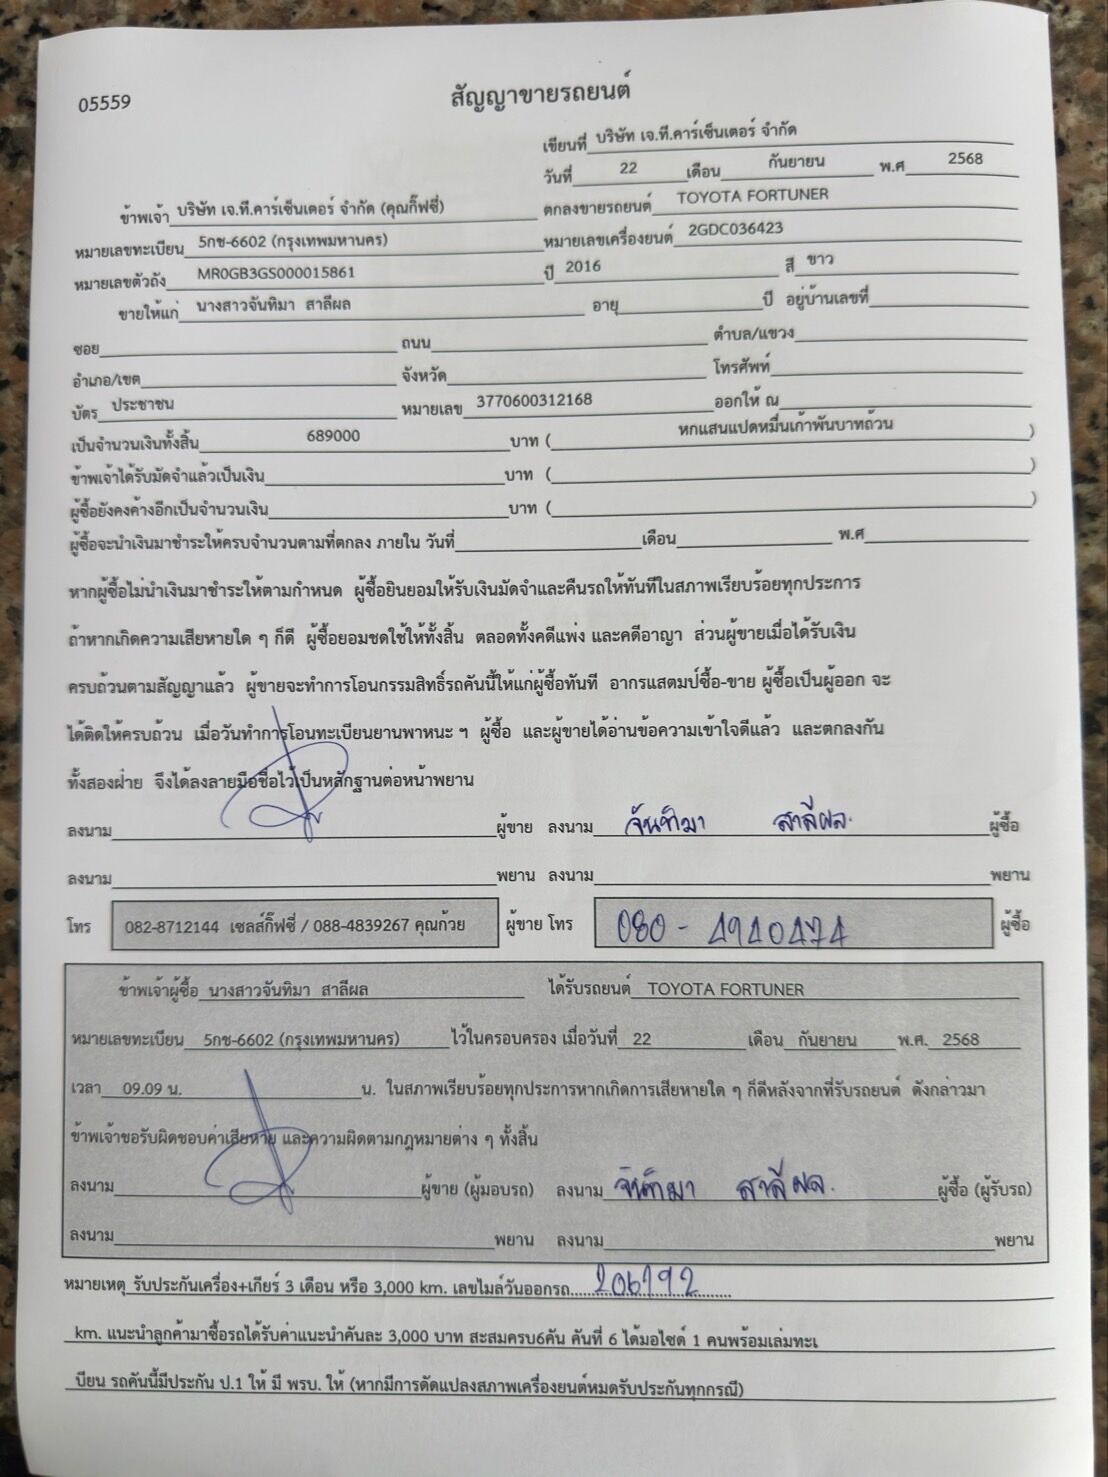 05559
สัญญาขายรถยนต์
เขียนที่ บริษัท เจ.ที.คาร์เซ็นเตอร์ จำกัด
วันที่ 22 เดือน กันยายน พ.ศ 2568
ข้าพเจ้า บริษัท เจ.ที.คาร์เซ็นเตอร์ จำกัด (คุณกิ๊ฟซี่) ตกลงขายรถยนต์ TOYOTA FORTUNER
หมายเลขทะเบียน 5กช-6602 (กรุงเทพมหานคร) หมายเลขเครื่องยนต์ 2GDC036423
หมายเลขตัวถัง MR0GB3GS000015861 ปี 2016 สี ขาว
ขายให้แก่ นางสาวจันทิมา สาลีผล อายุ ปี อยู่บ้านเลขที่
ซอย ถนน ตำบล/แขวง
อำเภอ/เขต จังหวัด โทรศัพท์
บัตร ประชาชน หมายเลข 3770600312168 ออกให้ ณ
เป็นจำนวนเงินทั้งสิ้น 689000 บาท ( หกแสนแปดหมื่นเก้าพันบาทถ้วน )
ข้าพเจ้าได้รับมัดจำแล้วเป็นเงิน บาท ( )
ผู้ซื้อยังคงค้างอีกเป็นจำนวนเงิน บาท ( )
ผู้ซื้อจะนำเงินมาชำระให้ครบจำนวนตามที่ตกลง ภายใน วันที่ เดือน พ.ศ
หากผู้ซื้อไม่นำเงินมาชำระให้ตามกำหนด ผู้ซื้อยินยอมให้รับเงินมัดจำและคืนรถให้ทันทีในสภาพเรียบร้อยทุกประการ
ถ้าหากเกิดความเสียหายใด ๆ ก็ดี ผู้ซื้อยอมชดใช้ให้ทั้งสิ้น ตลอดทั้งคดีแพ่ง และคดีอาญา ส่วนผู้ขายเมื่อได้รับเงิน
ครบถ้วนตามสัญญาแล้ว ผู้ขายจะทำการโอนกรรมสิทธิ์รถคันนี้ให้แก่ผู้ซื้อทันที อากรแสตมป์ซื้อ-ขาย ผู้ซื้อเป็นผู้ออก จะ
ได้ติดให้ครบถ้วน เมื่อวันทำการโอนทะเบียนยานพาหนะ ฯ ผู้ซื้อ และผู้ขายได้อ่านข้อความเข้าใจดีแล้ว และตกลงกัน
ทั้งสองฝ่าย จึงได้ลงลายมือชื่อไว้เป็นหลักฐานต่อหน้าพยาน
ลงนาม ผู้ขาย ลงนาม จันทิมา สาลีผล ผู้ซื้อ
ลงนาม พยาน ลงนาม พยาน
โทร 082-8712144 เซลส์กิ๊ฟซี่ / 088-4839267 คุณก้วย ผู้ขาย โทร 080-4940474 ผู้ซื้อ
ข้าพเจ้าผู้ซื้อ นางสาวจันทิมา สาลีผล ได้รับรถยนต์ TOYOTA FORTUNER
หมายเลขทะเบียน 5กช-6602 (กรุงเทพมหานคร) ไว้ในครอบครอง เมื่อวันที่ 22 เดือน กันยายน พ.ศ. 2568
เวลา 09.09 น. น. ในสภาพเรียบร้อยทุกประการหากเกิดการเสียหายใด ๆ ก็ดีหลังจากที่รับรถยนต์ ดังกล่าวมา
ข้าพเจ้าขอรับผิดชอบค่าเสียหาย และความผิดตามกฎหมายต่าง ๆ ทั้งสิ้น
ลงนาม ผู้ขาย (ผู้มอบรถ) ลงนาม จันทิมา สาลีผล. ผู้ซื้อ (ผู้รับรถ)
ลงนาม พยาน ลงนาม พยาน
หมายเหตุ รับประกันเครื่อง+เกียร์ 3 เดือน หรือ 3,000 km. เลขไมล์วันออกรถ 206192
km. แนะนำลูกค้ามาซื้อรถได้รับค่าแนะนำคันละ 3,000 บาท สะสมครบ6คัน คันที่ 6 ได้มอไซด์ 1 คนพร้อมเล่มทะเ
บียน รถคันนี้มีประกัน ป.1 ให้ มี พรบ. ให้ (หากมีการดัดแปลงสภาพเครื่องยนต์หมดรับประกันทุกกรณี)